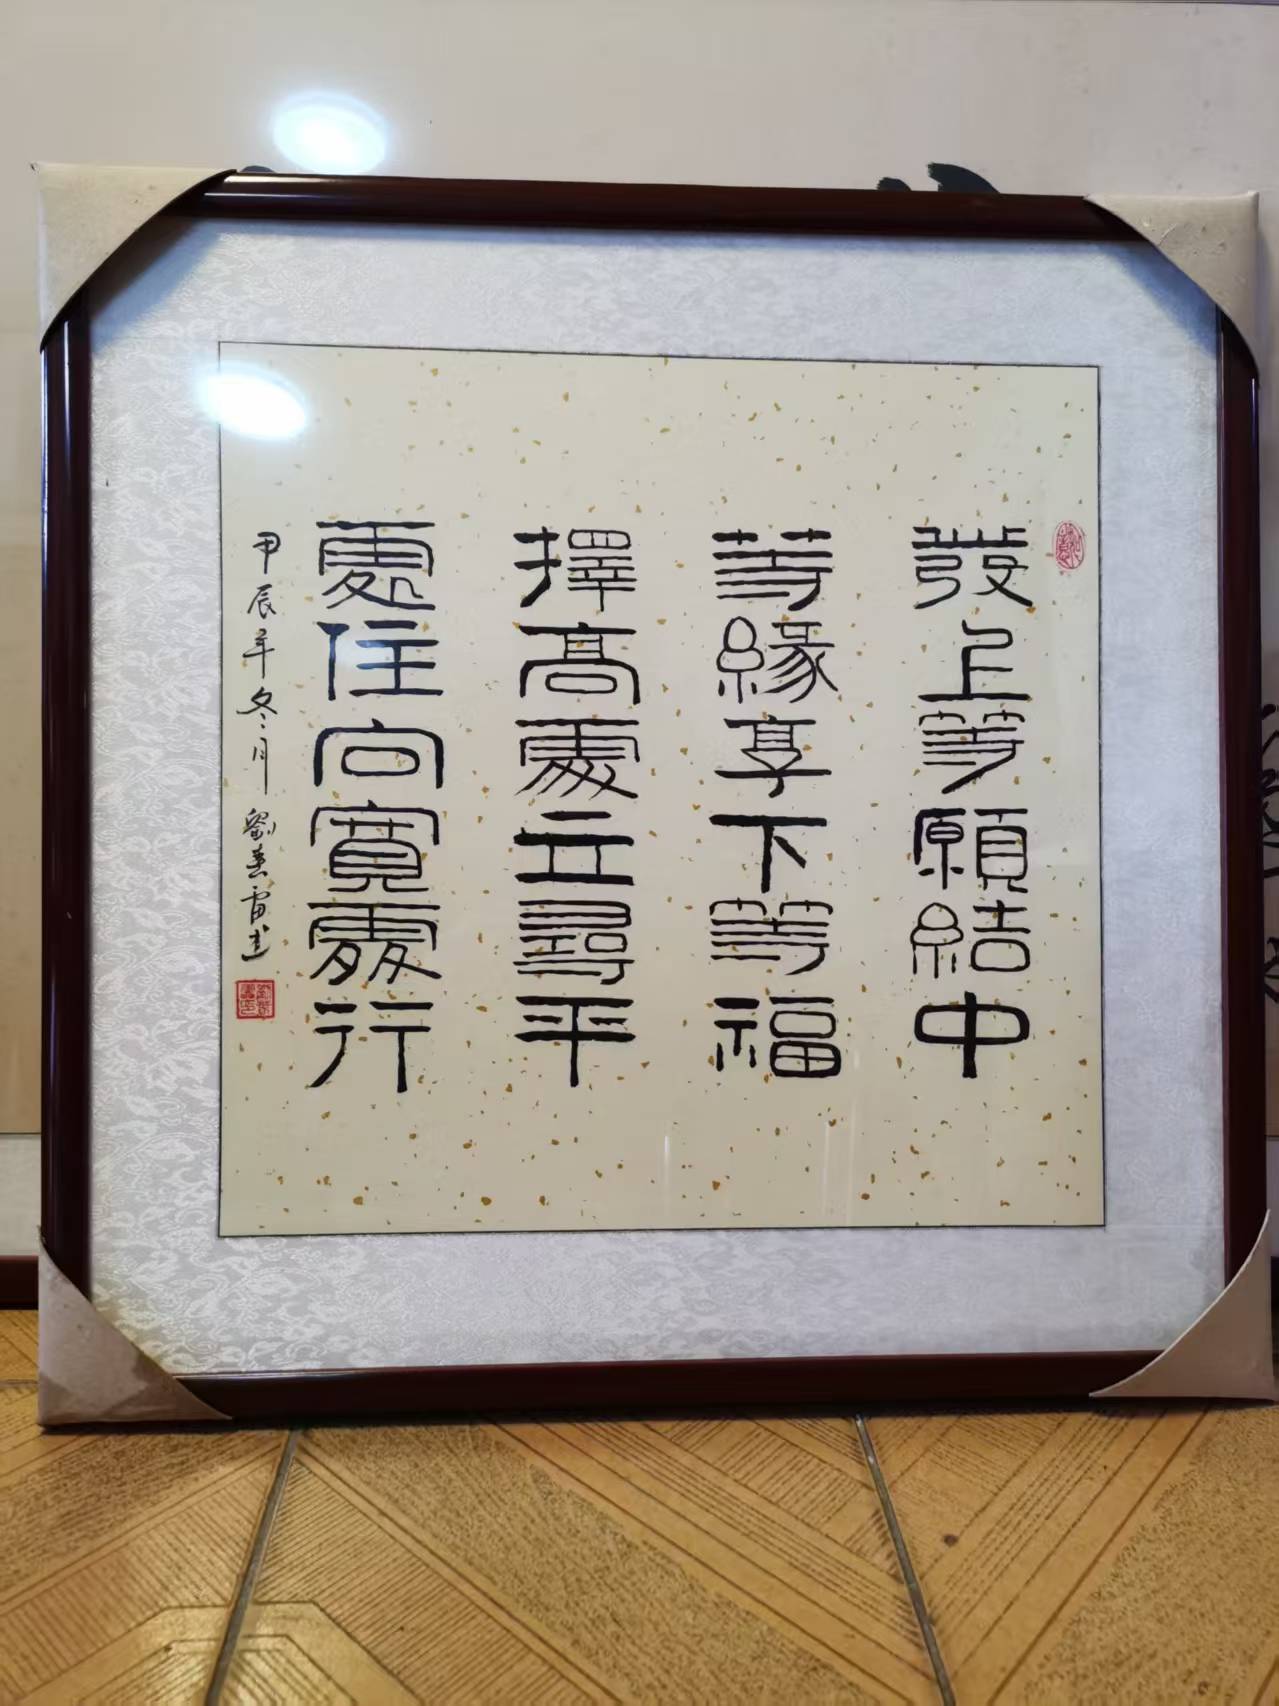 發上等願結中
等緣享下等福
擇高處立尋平
處住向寬處行
甲辰年冬月劉春雷書